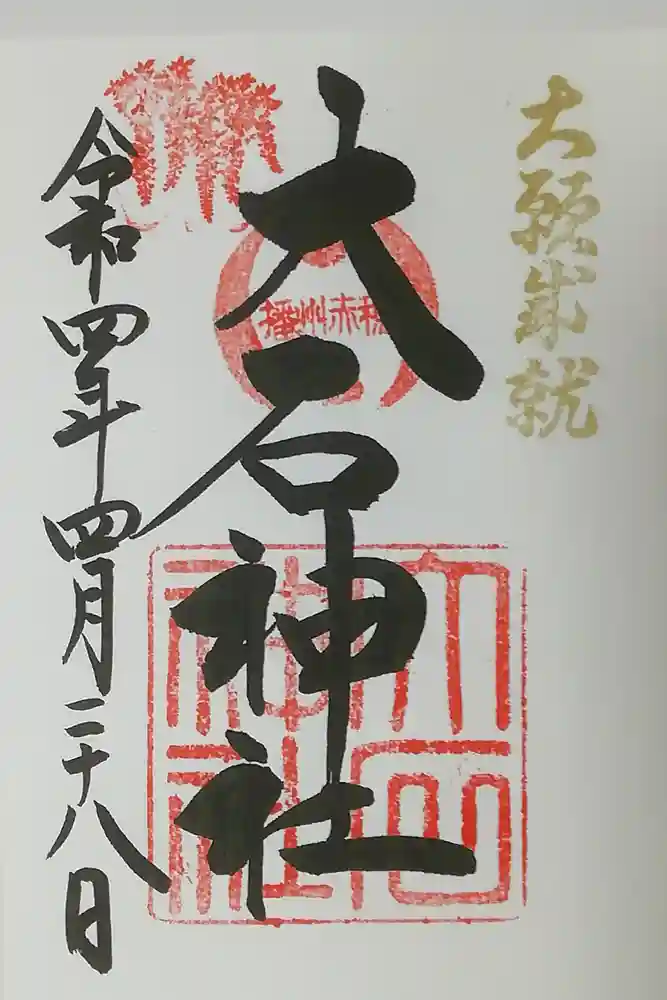 大願成就
大石神社
播州赤穂
大石神社
令和四年四月二十八日